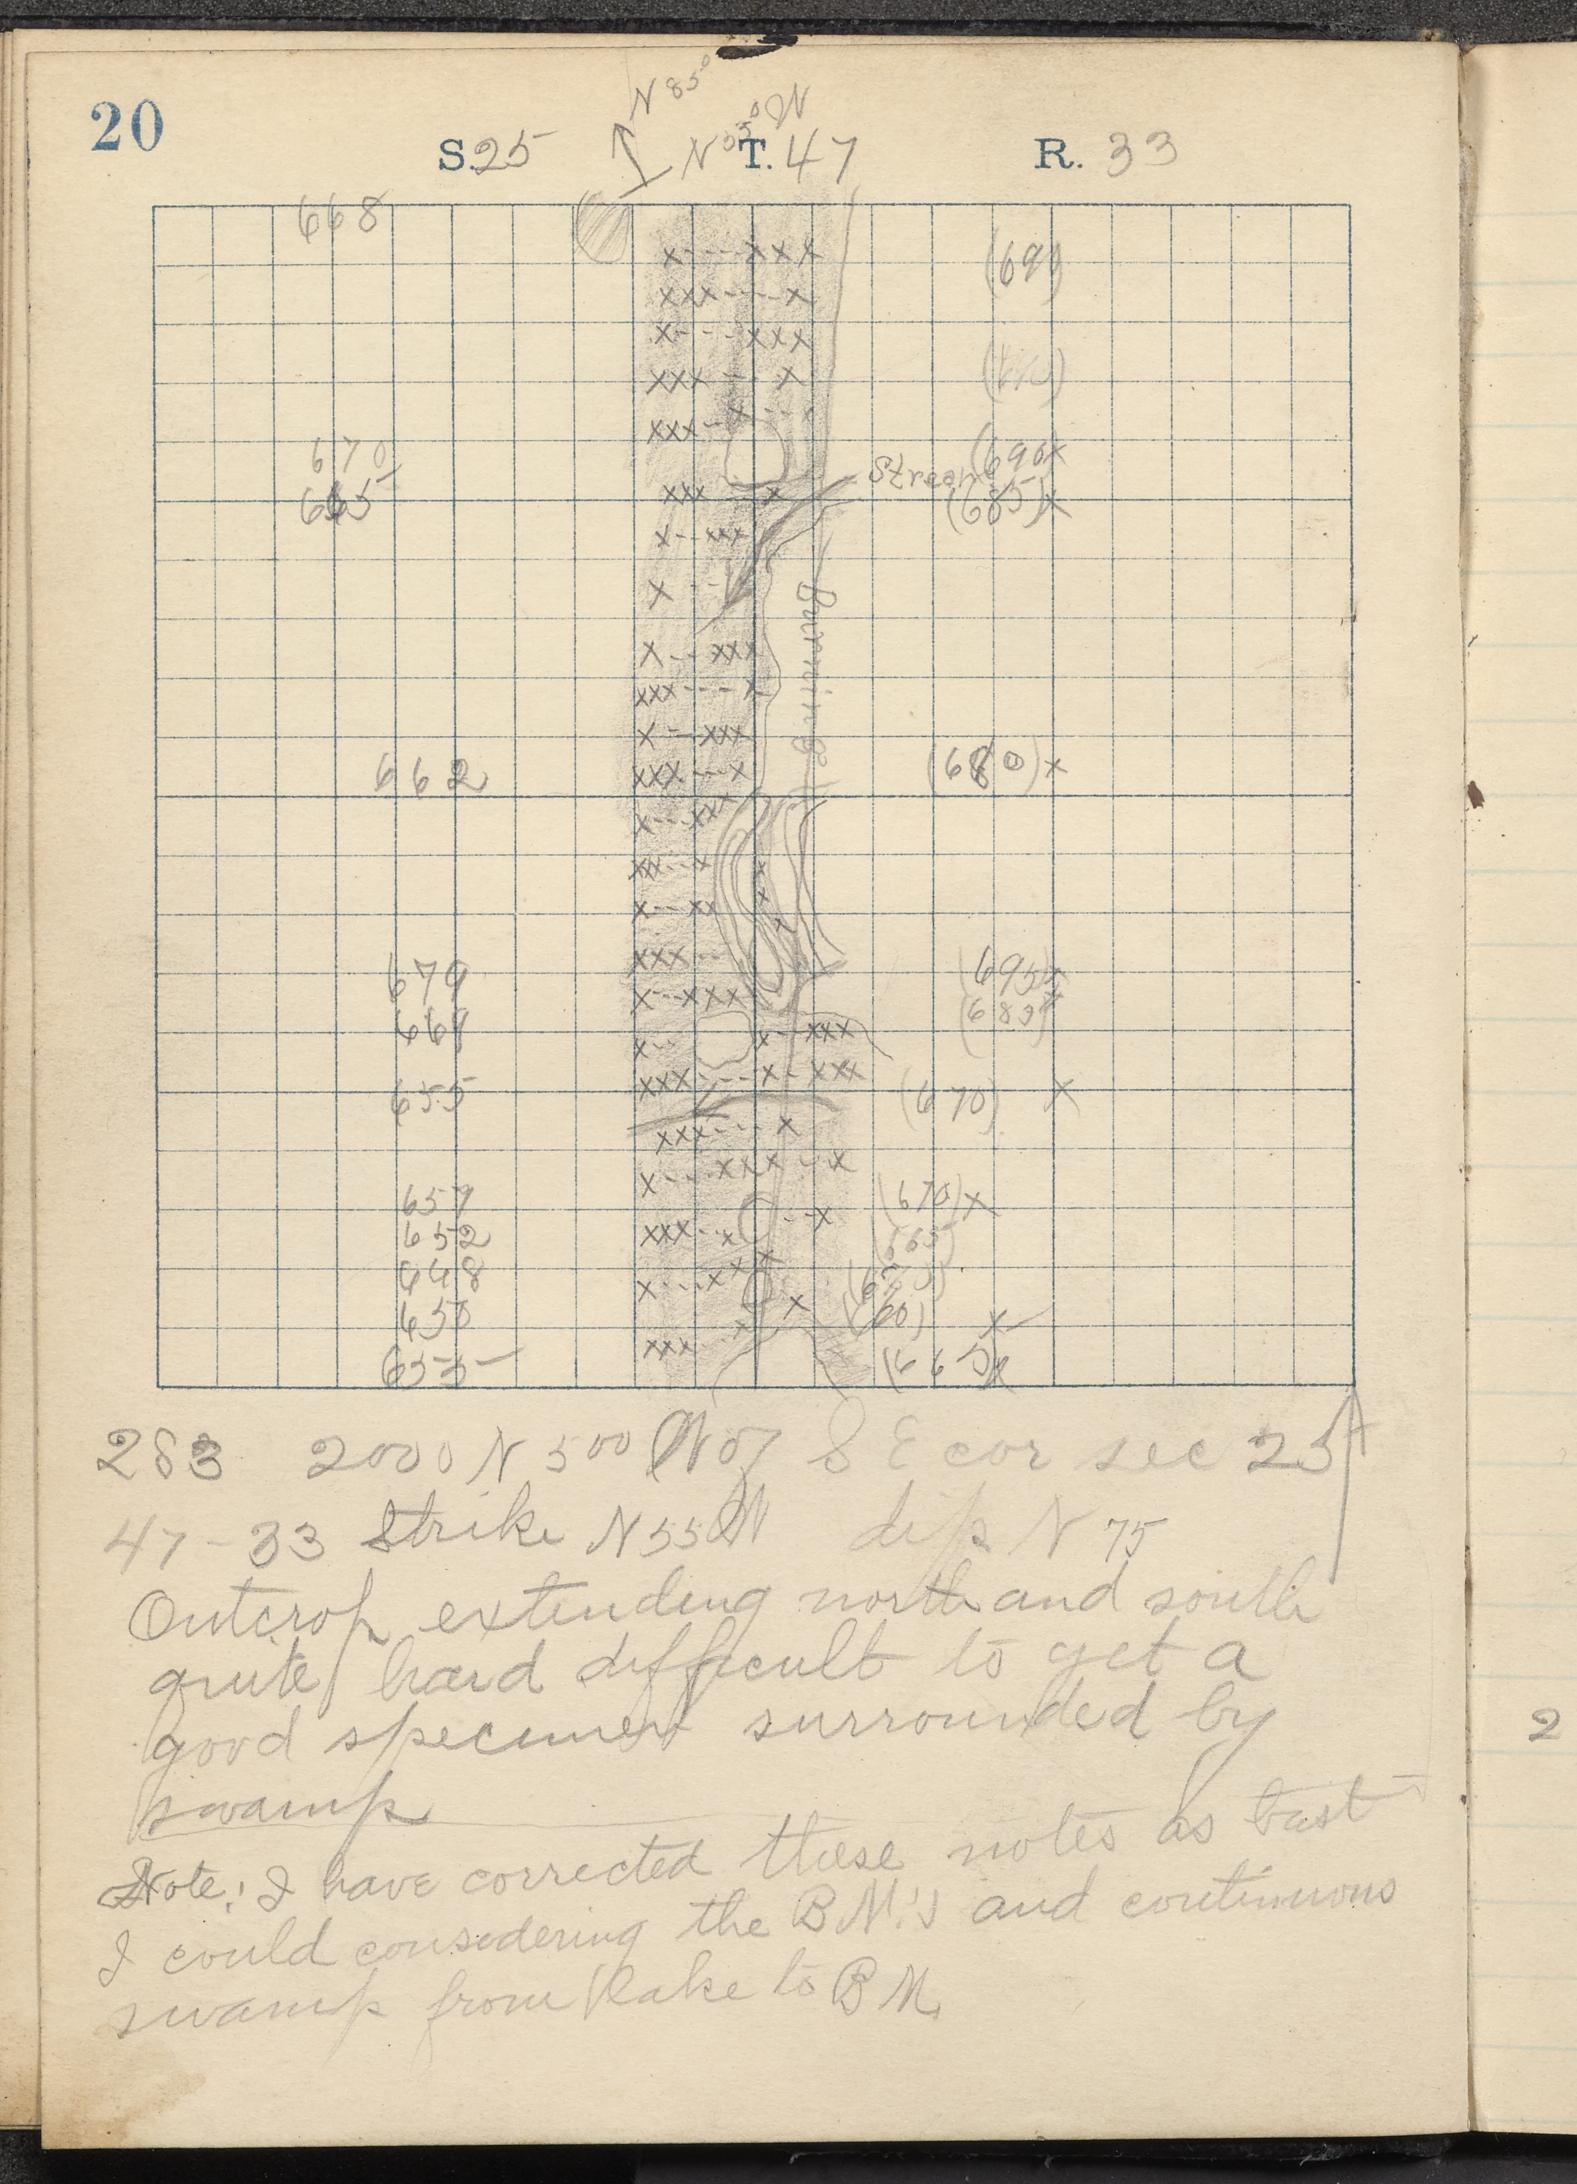 20
N 85°
N 55° W
S. 25 T. 47 R. 33
668
670
665
(690)x
Stream
(685)x
Burning
662
(680)x
679
(695)x
669
655
(670) x
659
(670)x
652
(665)
648
650
(660)
655
(665)x
283 2000 N 500 W of S E cor sec 25
47-33 Strike N 55 W dip N 75
Outcrop extending north and south
quite hard difficult to get a
good specimen surrounded by
swamp
Note: I have corrected these notes as best
I could considering the B M's and continuous
swamp from lake to B M.
2